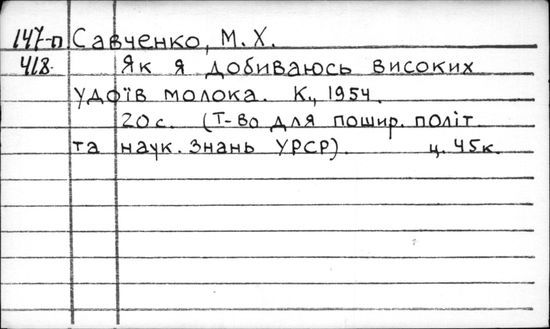 147-п Савченко, М. Х.
418. Як я добиваюсь високих
удоїв молока. К., 1954.
20 с. (Т-во для пошир. політ.
та наук. знань УРСР). ц. 45к.